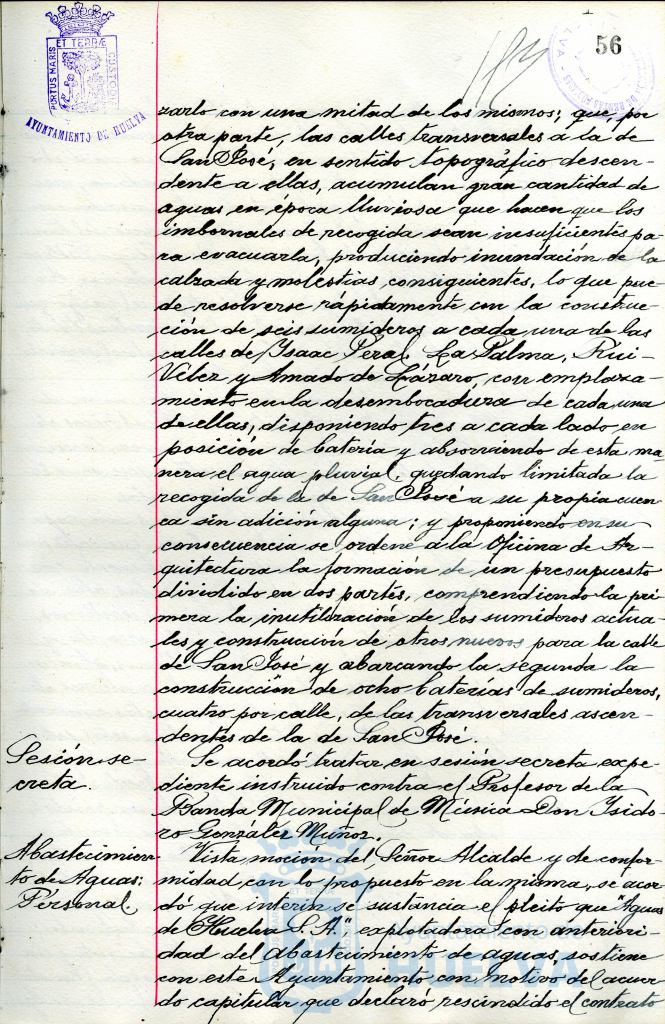 56
PORTUS MARIS
ET TERRÆ
CUSTODIA
AYUNTAMIENTO DE HUELVA
zarlo con una mitad de los mismos; que, por
otra parte, las calles transversales a la de
San José, en sentido topográfico descen-
dente a ellas, acumulan gran cantidad de
aguas en época lluviosa que hacen que los
imbornales de recogida sean insuficientes pa-
ra evacuarla, produciendo inundación de la
calzada y molestias consiguientes, lo que pue-
de resolverse rápidamente con la construc-
ción de seis sumideros a cada una de las
calles de Isaac Peral, La Palma, Rui-
Vélez y Amado de Lázaro, con emplaza-
miento en la desembocadura de cada una
de ellas, disponiendo tres a cada lado, en
posición de batería y absorviendo de esta ma-
nera el agua pluvial, quedando limitada la
recogida de la de San José a su propia cuen-
ca sin adición alguna; y proponiendo en su
consecuencia se ordene a la Oficina de Ar-
quitectura la formación de un presupuesto
dividido en dos partes, comprendiendo la pri-
mera la inutilización de los sumideros actua-
les y construcción de otros nuevos para la calle
de San José y abarcando la segunda la
construcción de ocho baterías de sumideros,
cuatro por calle, de las transversales ascen-
dentes de la de San José.
Sesión se-
creta.
Se acordó tratar en sesión secreta expe-
diente instruido contra el Profesor de la
Banda Municipal de Música Don Isido-
ro González Muñoz.
Abastecimien-
to de Aguas:
Personal
Vista moción del Señor Alcalde y de confor-
midad con lo propuesto en la misma, se acor-
dó que interin se sustancia el pleito que "Aguas
de Huelva S. A." explotadora con anteriori-
dad del abastecimiento de aguas, sostiene
con este Ayuntamiento con motivo del acuer-
do capitular que declaró rescindido el contrato